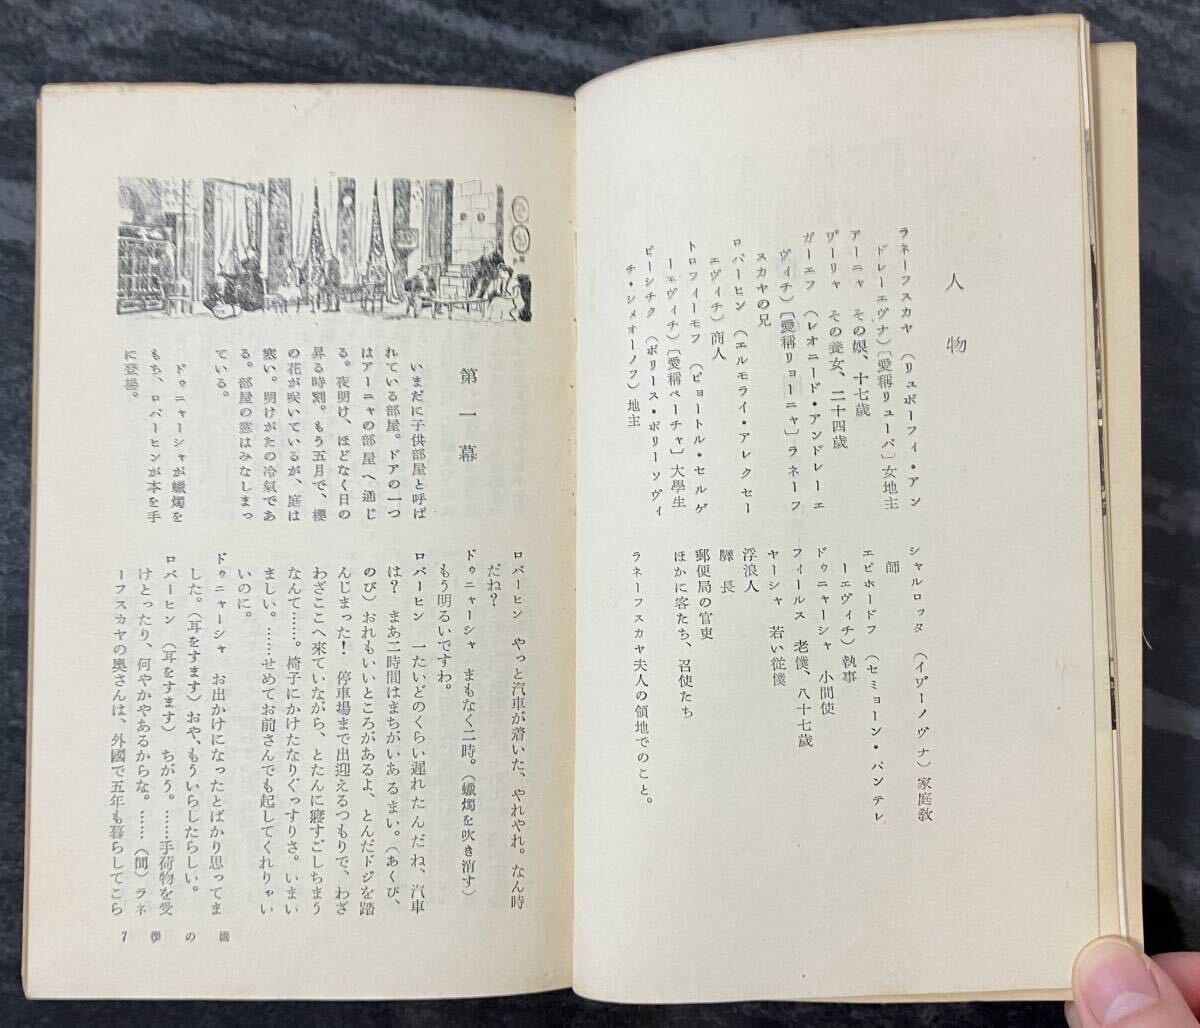 人物
ラネーフスカヤ （リュボーフィ・アン
ドレーエヴナ）〔愛稱リューバ〕女地主
アーニャ その娘、十七歳
ヴーリャ その養女、二十四歳
ガーエフ （レオニード・アンドレーエ
ヴィチ）〔愛稱リョーニャ〕ラネーフ
スカヤの兄
ロパーヒン （エルモライ・アレクセー
エヴィチ）商人
トロフィーモフ （ピョートル・セルゲ
ーエヴィチ）〔愛稱ペーチャ〕大學生
ピーシチク （ボリース・ボリーソヴィ
チ・シメオーノフ）地主
シャルロッタ （イヴーノヴナ）家庭教
師
エピホードフ （セミョーン・パンテレ
ーエヴィチ）執事
ドゥニャーシャ 小間使
フィールス 老僕、八十七歳
ヤーシャ 若い從僕
浮浪人
驛長
郵便局の官吏
ほかに客たち、召使たち
ラネーフスカヤ夫人の領地でのこと。
第一幕
いまだに子供部屋と呼ば
れている部屋。ドアの一つ
はアーニャの部屋へ通じ
る。夜明け、ほどなく日の
昇る時刻。もう五月で、櫻
の花が咲いているが、庭は
寒い。明けがたの冷氣であ
る。部屋の窓はみなしまっ
ている。
ドゥニャーシャが蠟燭を
もち、ロパーヒンが本を手
に登場。
ロパーヒン やっと汽車が着いた、やれやれ。なん時
だね？
ドゥニャーシャ まもなく二時。（蠟燭を吹き消す）
もう明るいですわ。
ロパーヒン 一たいどのくらい遲れたんだね、汽車
は？ まあ二時間はまちがいあるまい。（あくび、
のび）おれもいいところがあるよ、とんだドジを踏
んじまった！ 停車場まで出迎えるつもりで、わざ
わざここへ來ていながら、とたんに寢すごしちまう
なんて……。椅子にかけたなりぐっすりさ。いまい
ましい。……せめてお前さんでも起してくれりゃい
いのに。
ドゥニャーシャ お出かけになったとばかり思ってま
した。（耳をすます）おや、もういらしたらしい。
ロパーヒン （耳をすます）ちがう。……手荷物を受
けとったり、何やかやあるからな。……（間）ラネ
ーフスカヤの奥さんは、外國で五年も暮らしてこら
櫻の園
7